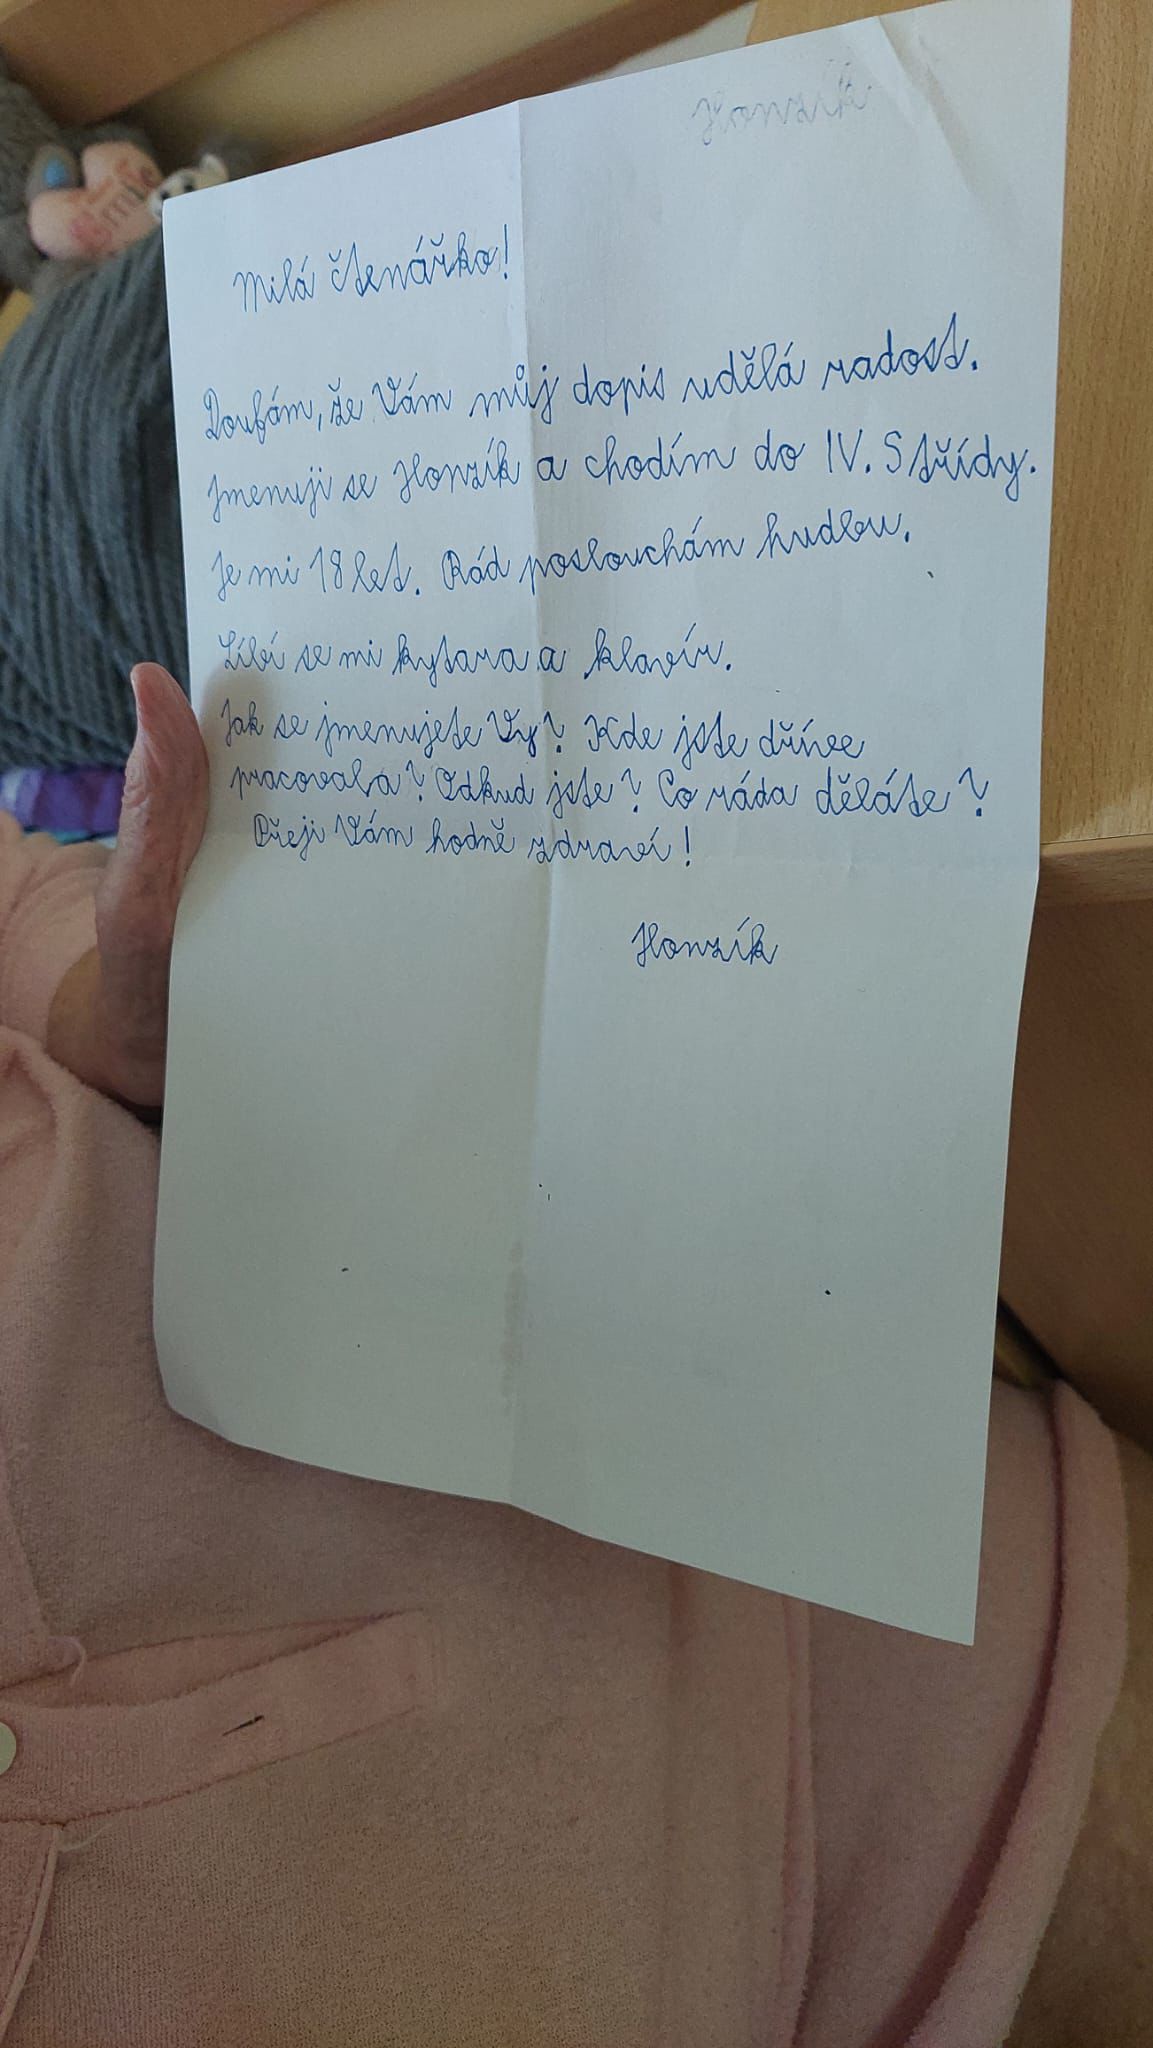 Honzík
smile
Milá čtenářko!
Doufám, že Vám můj dopis udělá radost.
Jmenuji se Honzík a chodím do IV. S třídy.
Je mi 18 let. Rád poslouchám hudbu.
Líbí se mi kytara a klavír.
Jak se jmenujete Vy? Kde jste dříve
pracovala? Odkud jste? Co ráda děláte?
Přeji Vám hodně zdraví!
Honzík